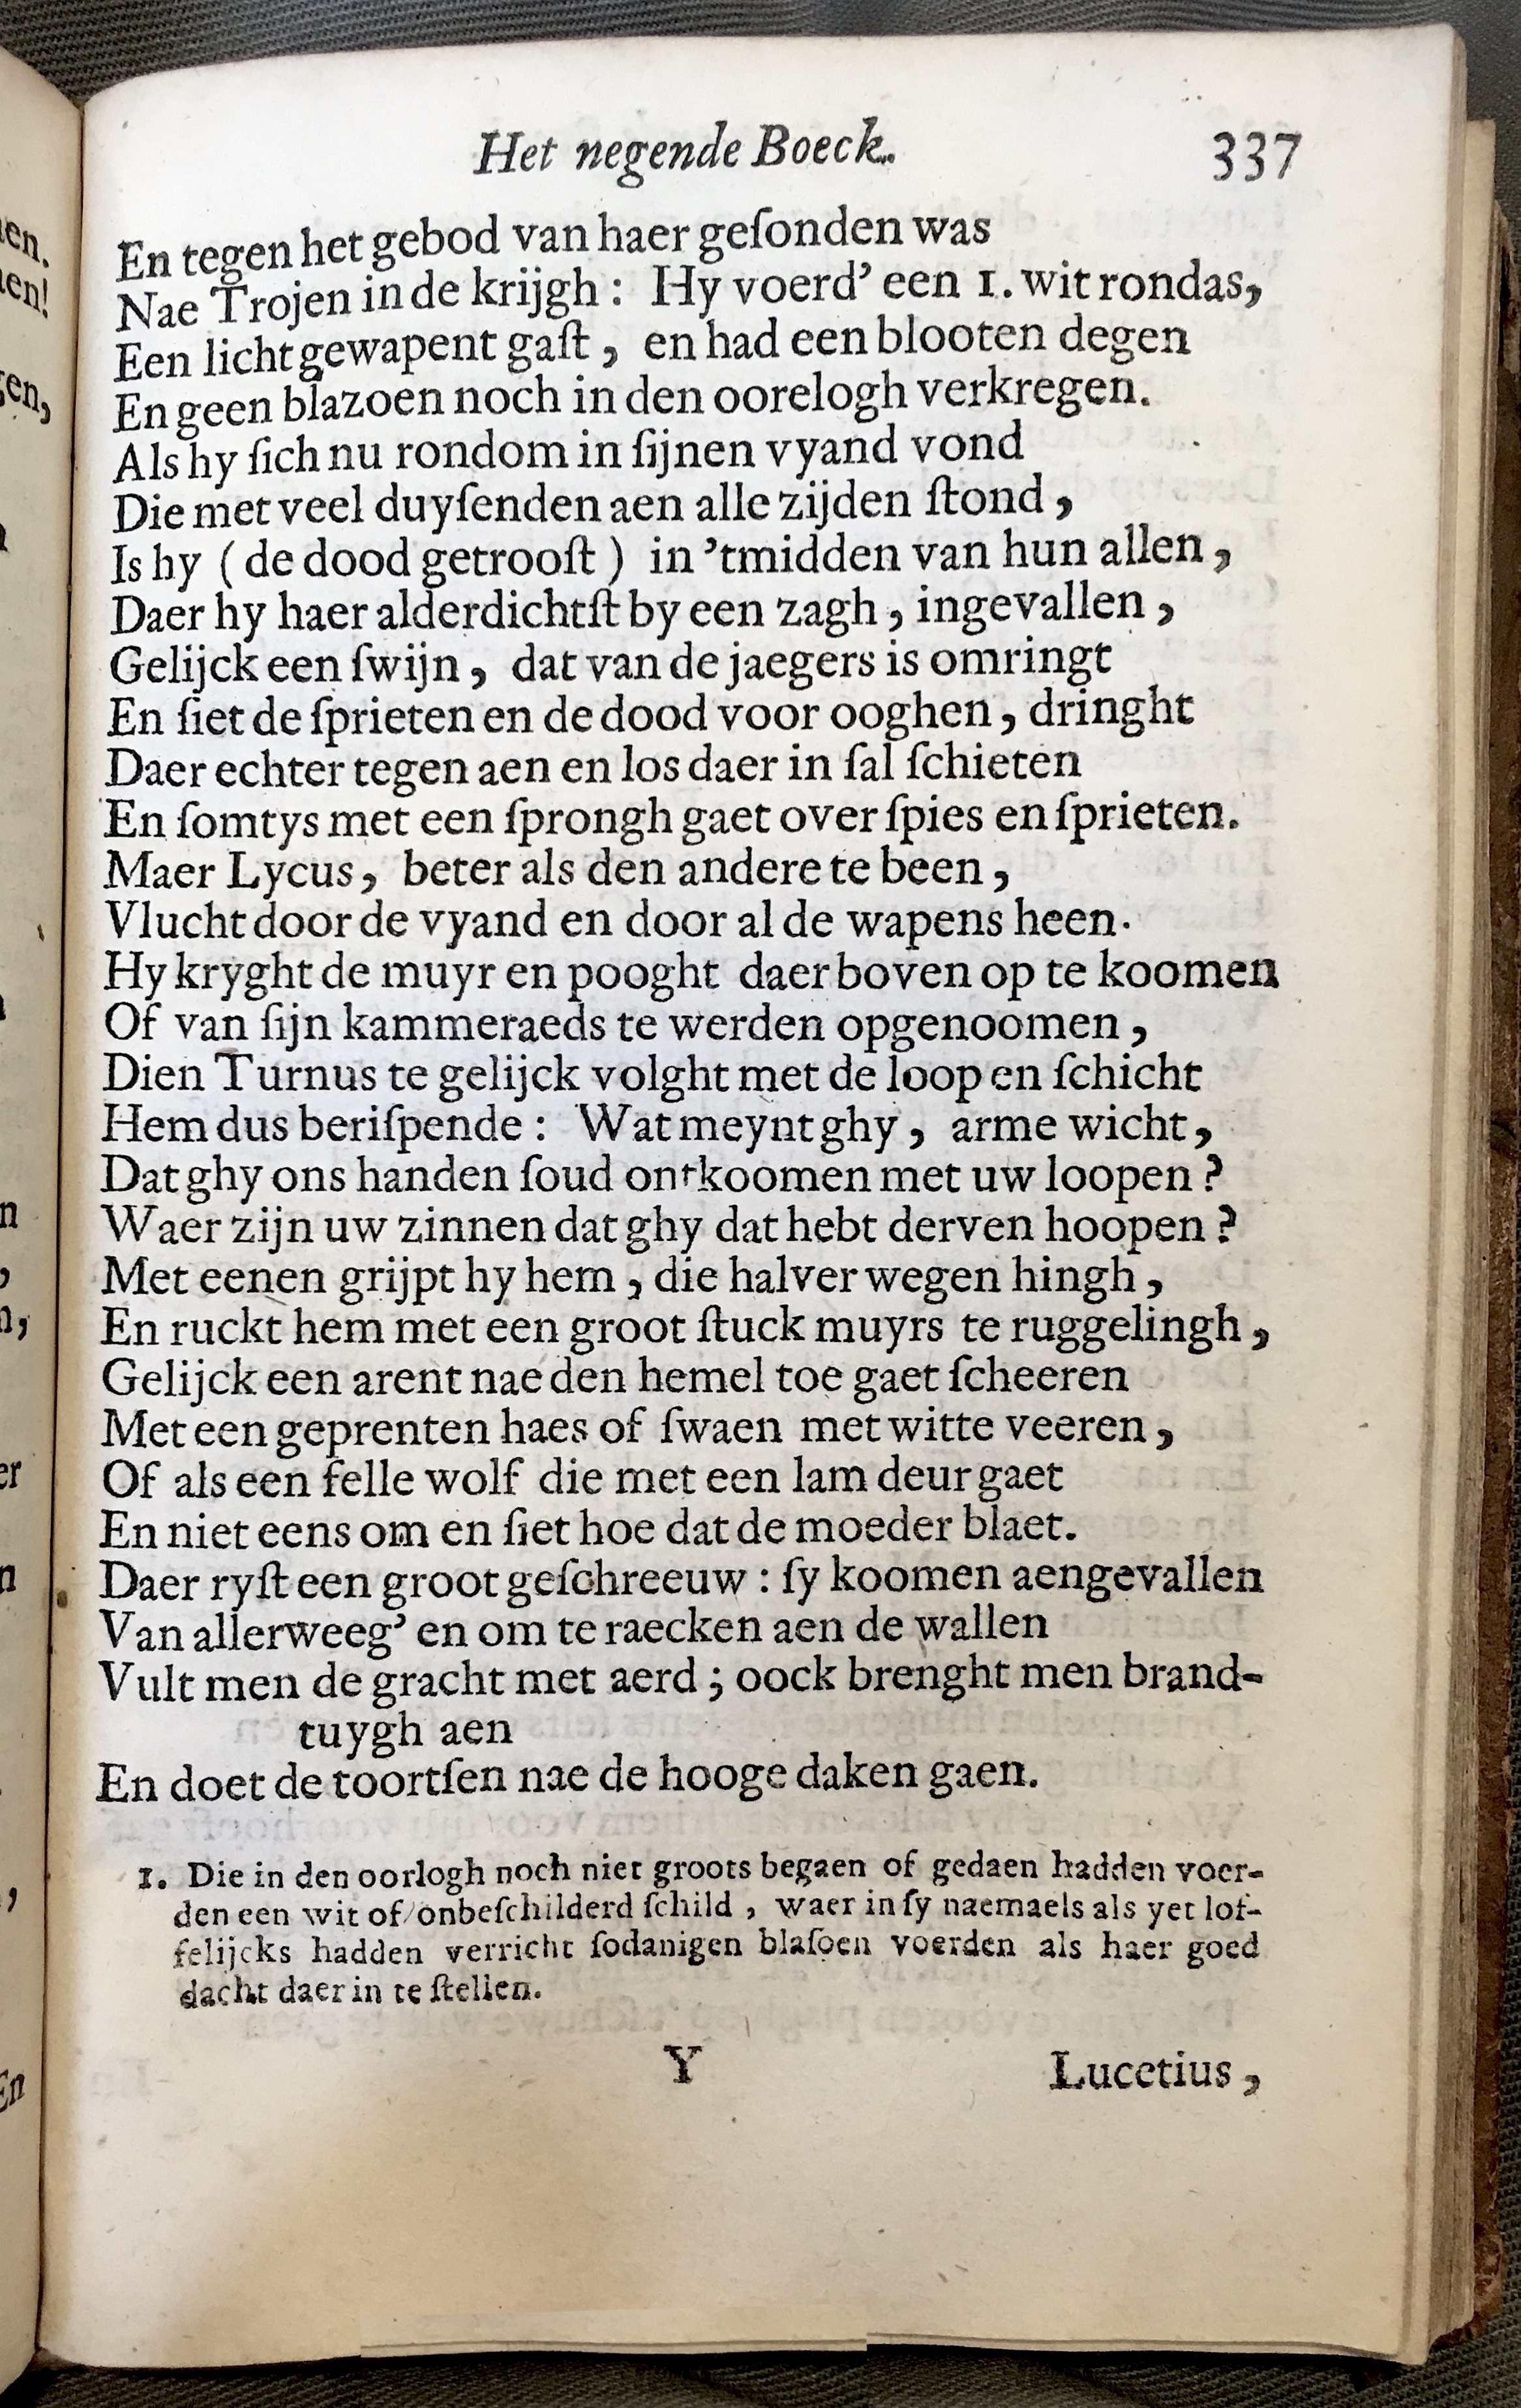 Het negende Boeck. 337
En tegen het gebod van haer geſonden was
Nae Trojen in de krijgh: Hy voerd' een 1. wit rondas,
Een licht gewapent gaſt, en had een blooten degen
En geen blazoen noch in den oorelogh verkregen.
Als hy ſich nu rondom in ſijnen vyand vond
Die met veel duyſenden aen alle zijden ſtond,
Is hy (de dood getrooſt) in 'tmidden van hun allen,
Daer hy haer alderdichtſt by een zagh, ingevallen,
Gelijck een ſwijn, dat van de jaegers is omringt
En ſiet de ſprieten en de dood voor ooghen, dringht
Daer echter tegen aen en los daer in ſal ſchieten
En ſomtys met een ſprongh gaet over ſpies en ſprieten.
Maer Lycus, beter als den andere te been,
Vlucht door de vyand en door al de wapens heen.
Hy kryght de muyr en pooght daer boven op te koomen
Of van ſijn kammeraeds te werden opgenoomen,
Dien Turnus te gelijck volght met de loop en ſchicht
Hem dus beriſpende: Wat meynt ghy, arme wicht,
Dat ghy ons handen ſoud ontkoomen met uw loopen?
Waer zijn uw zinnen dat ghy dat hebt derven hoopen?
Met eenen grijpt hy hem, die halver wegen hingh,
En ruckt hem met een groot ſtuck muyrs te ruggelingh,
Gelijck een arent nae den hemel toe gaet ſcheeren
Met een geprenten haes of ſwaen met witte veeren,
Of als een felle wolf die met een lam deur gaet
En niet eens om en ſiet hoe dat de moeder blaet.
Daer ryſt een groot geſchreeuw: ſy koomen aengevallen
Van allerweeg' en om te raecken aen de wallen
Vult men de gracht met aerd; oock brenght men brand-
tuygh aen
En doet de toortſen nae de hooge daken gaen.
1. Die in den oorlogh noch niet groots begaen of gedaen hadden voer-
den een wit of onbeſchilderd ſchild, waer in ſy naemaels als yet lof-
felijcks hadden verricht ſodanigen blaſoen voerden als haer goed
dacht daer in te ſtellen.
Y Lucetius,